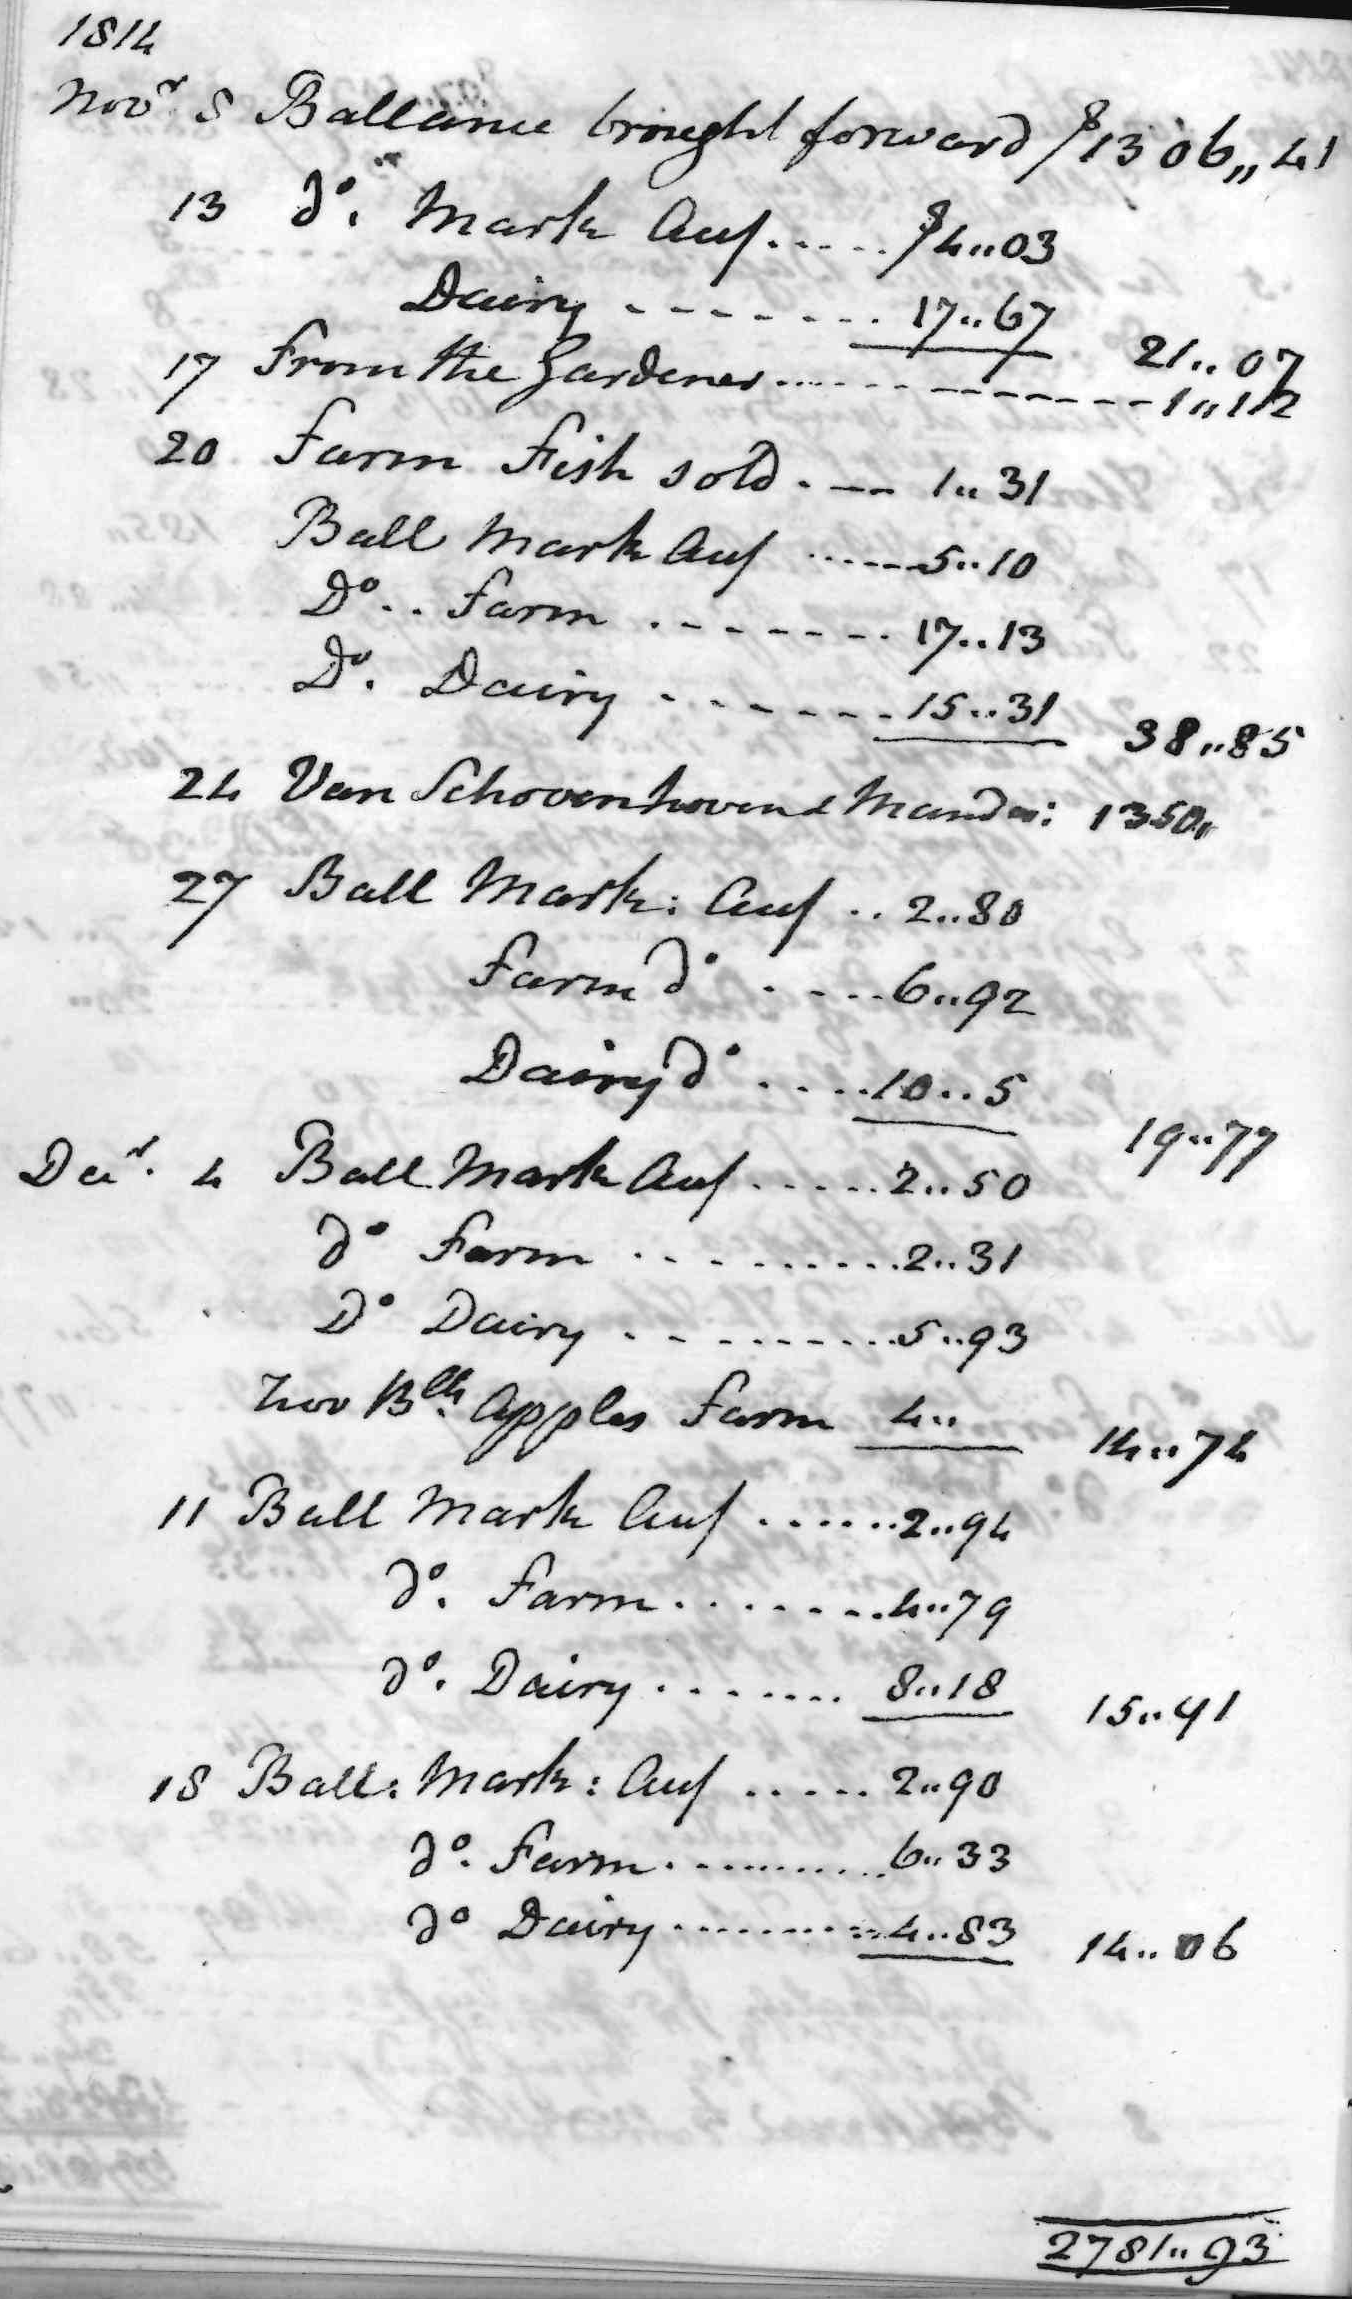 1814
Novr 8 Ballance brought forward $1306,,41
13 do. Mark Auf..... $4..03
Dairy - - - - - - - . 17..67 21..07
17 From the Gardener....------------1,,1/2
20 Farm Fish sold . -- 1..31
Ball Mark Auf ......5..10
Do.. Farm . - - - - - - . 17..13
Do. Dairy - - - - - - . 15..31 38..85
24 Van Schovenhoven & Mand m: 1350,,
27 Ball Mark: Auf .. 2..80
Farm do . . - - .. 6..92
Dairy do . . . . . 10..5 19..77
Decr. 4 Ball Mark Auf ......2..50
do Farm . . . . . . . . . 2..31
Do Dairy . - - - - - . . . 5..93
Two Blls. Apples Farm 4.. 14..74
11 Ball Mark Auf ......2..94
do. Farm . . . . . . . . 4..79
do. Dairy . . . . . . . . 8..18 15..91
18 Ball: Mark: Auf ..... 2..90
do. Farm . ........... 6..33
do Dairy ........... 4..83 14..06
2781..93